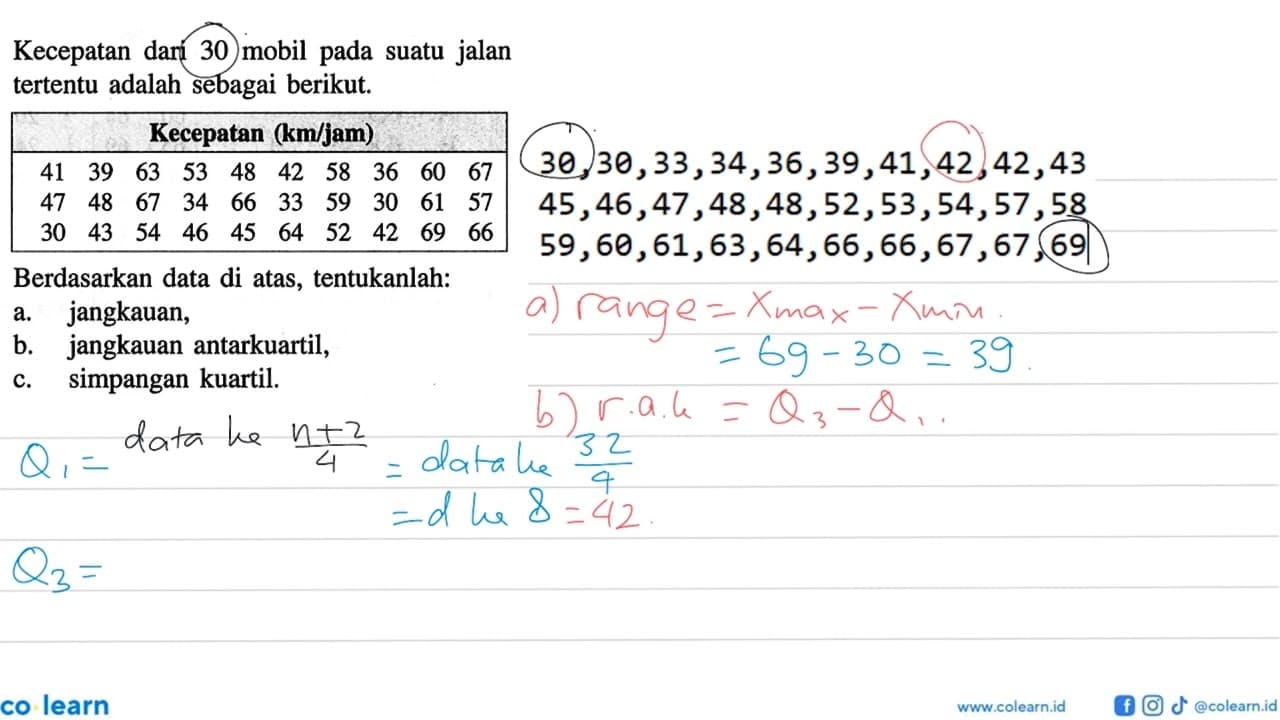 Kecepatan dari 30 mobil pada suatu jalan
tertentu adalah sebagai berikut.
Kecepatan (km/jam)
41 39 63 53 48 42 58 36 60 67
47 48 67 34 66 33 59 30 61 57
30 43 54 46 45 64 52 42 69 66
Berdasarkan data di atas, tentukanlah:
a. jangkauan,
b. jangkauan antarkuartil,
c. simpangan kuartil.
30,30,33,34,36,39,41,42,42,43
45,46,47,48,48,52,53,54,57,58
59,60,61,63,64,66,66,67,67,69
a) range = Xmax - Xmin.
= 69 - 30 = 39.
b) r.a.k = Q3 - Q1.
Q1 = data ke n+2/4 = data ke 32/4
= d ke 8 = 42.
Q3 =
co learn
www.colearn.id
@colearn.id